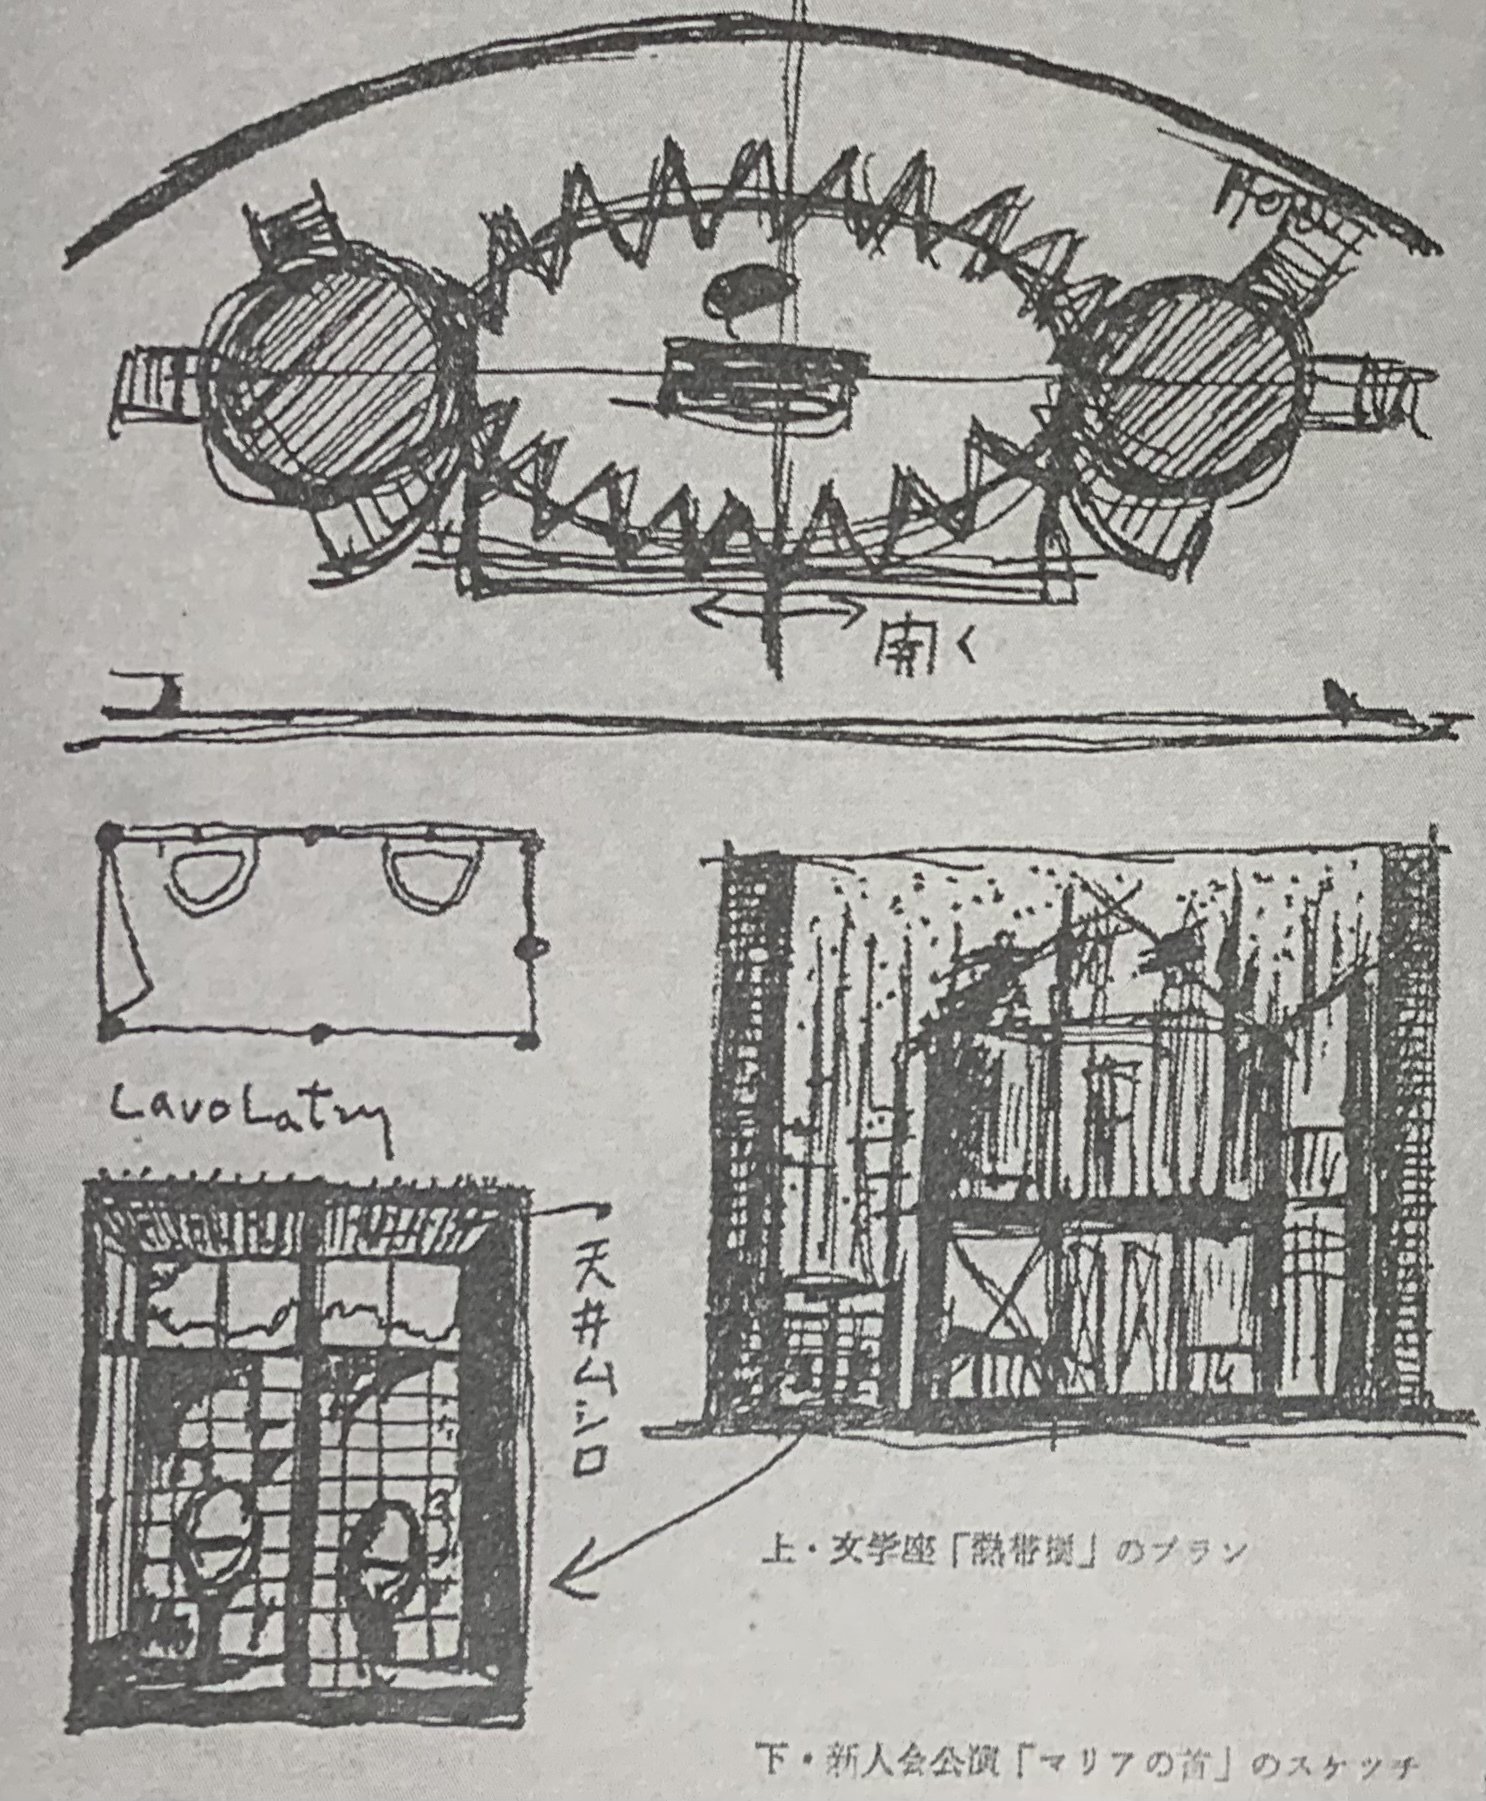 Hori
開く
Lavolatry
天井ムシロ
上・文学座「熱帯樹」のプラン
下・新人会公演「マリアの首」のスケッチ